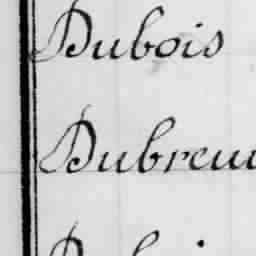 Dubois
Dubreu